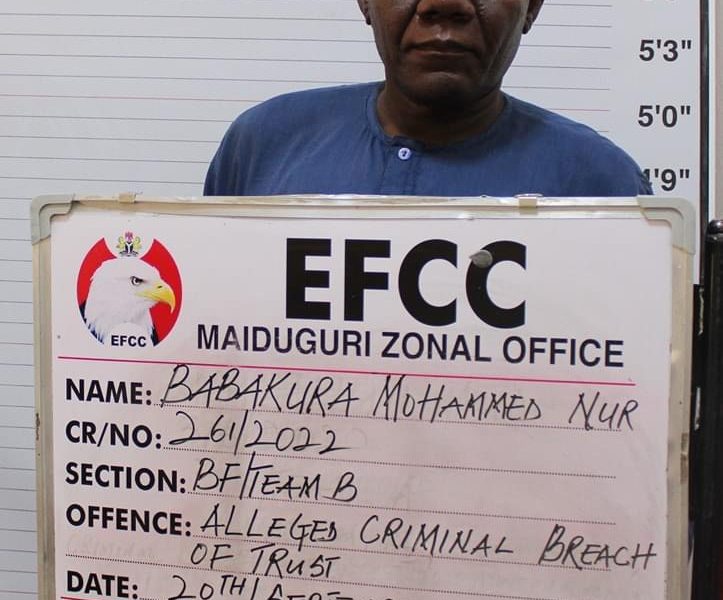 5'3"
5'0"
4'9"
EFCC
EFCC
MAIDUGURI ZONAL OFFICE
NAME: BABAKURA MOHAMMED NUR
CR/NO: 261/2022
SECTION: BF/TEAM B
OFFENCE: ALLEGED CRIMINAL BREACH
OF TRUST
DATE: 20TH/